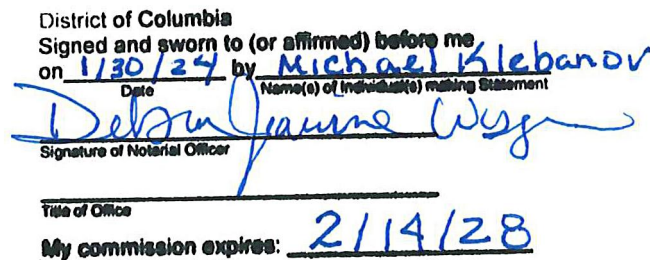 District of Columbia
Signed and sworn to (or affirmed) before me
on 1/30/24 by Michael Klebanov
Date Name(s) of Individual(s) making Statement
Signature of Notarial Officer
Title of Office
My commission expires: 2/14/28